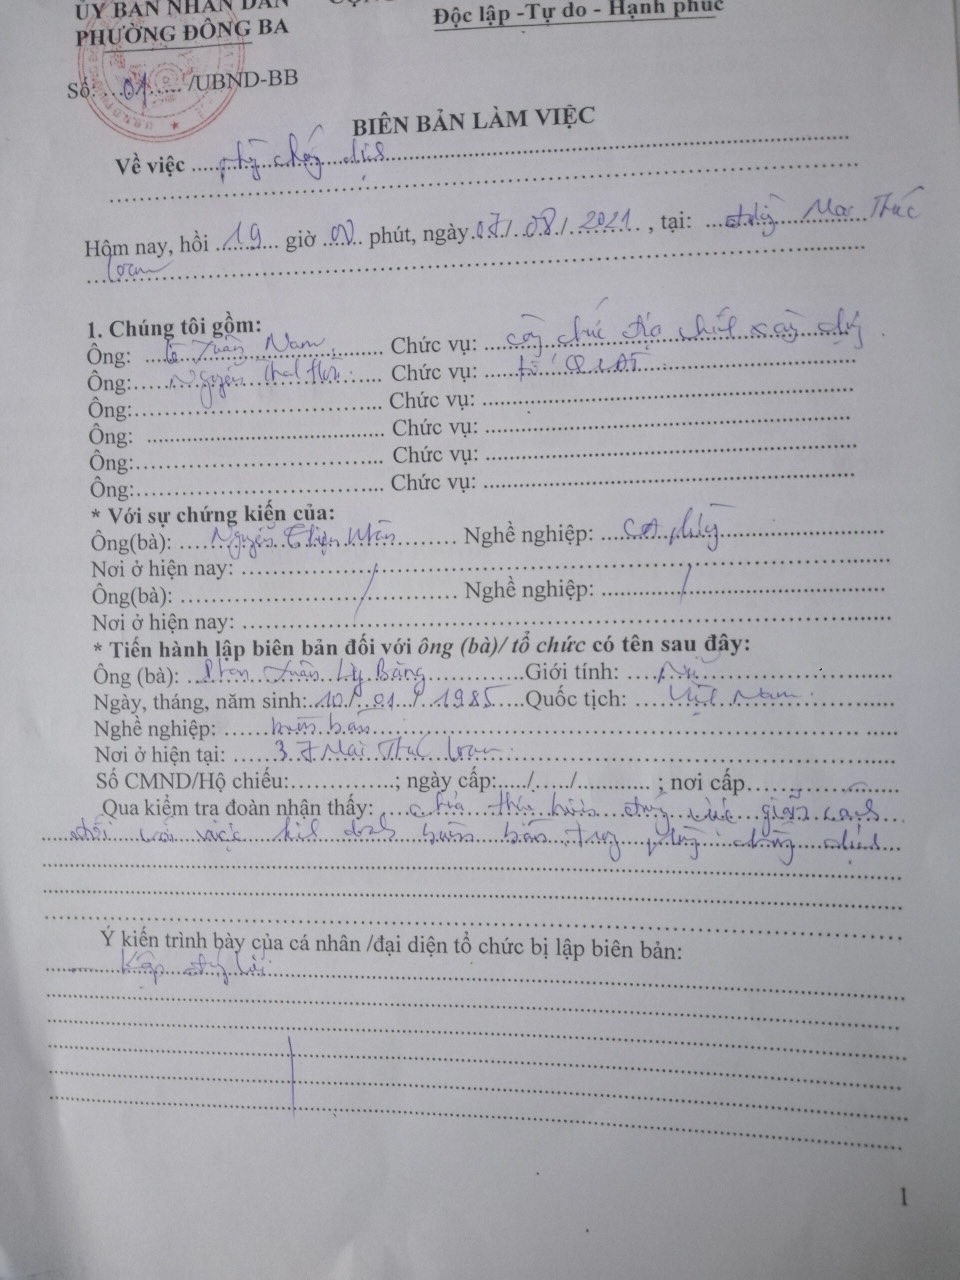 ỦY BAN NHÂN DÂN
PHƯỜNG ĐÔNG BA
Độc lập -Tự do - Hạnh phúc
Số: ...01...... /UBND-BB
BIÊN BẢN LÀM VIỆC
Về việc ..... chống dịch
Hôm nay, hồi ..19.. giờ .00.. phút, ngày.07./.08./..2021.. , tại: ... Mai Thúc
Loan
1. Chúng tôi gồm:
Ông: Lê Tuấn Nam Chức vụ: công chức địa chính xây dựng
Ông: Nguyễn Chức vụ: tổ QLĐT
Ông: Chức vụ:
Ông: Chức vụ:
Ông: Chức vụ:
Ông: Chức vụ:
* Với sự chứng kiến của:
Ông(bà): Nguyễn Thiện Nhân Nghề nghiệp: CA phường
Nơi ở hiện nay:
Ông(bà): Nghề nghiệp:
Nơi ở hiện nay:
* Tiến hành lập biên bản đối với ông (bà)/ tổ chức có tên sau đây:
Ông (bà): Phan Xuân Lý Băng Giới tính: Nữ
Ngày, tháng, năm sinh: 10 / 01 / 1985 Quốc tịch: Việt Nam
Nghề nghiệp: buôn bán
Nơi ở hiện tại: 37 Mai Thúc Loan
Số CMND/Hộ chiếu:..............; ngày cấp:...../...../............. ; nơi cấp
Qua kiểm tra đoàn nhận thấy: chưa thực hiện đúng việc giãn cách
đối với việc kinh doanh buôn bán trong phòng chống dịch
Ý kiến trình bày của cá nhân /đại diện tổ chức bị lập biên bản:
1